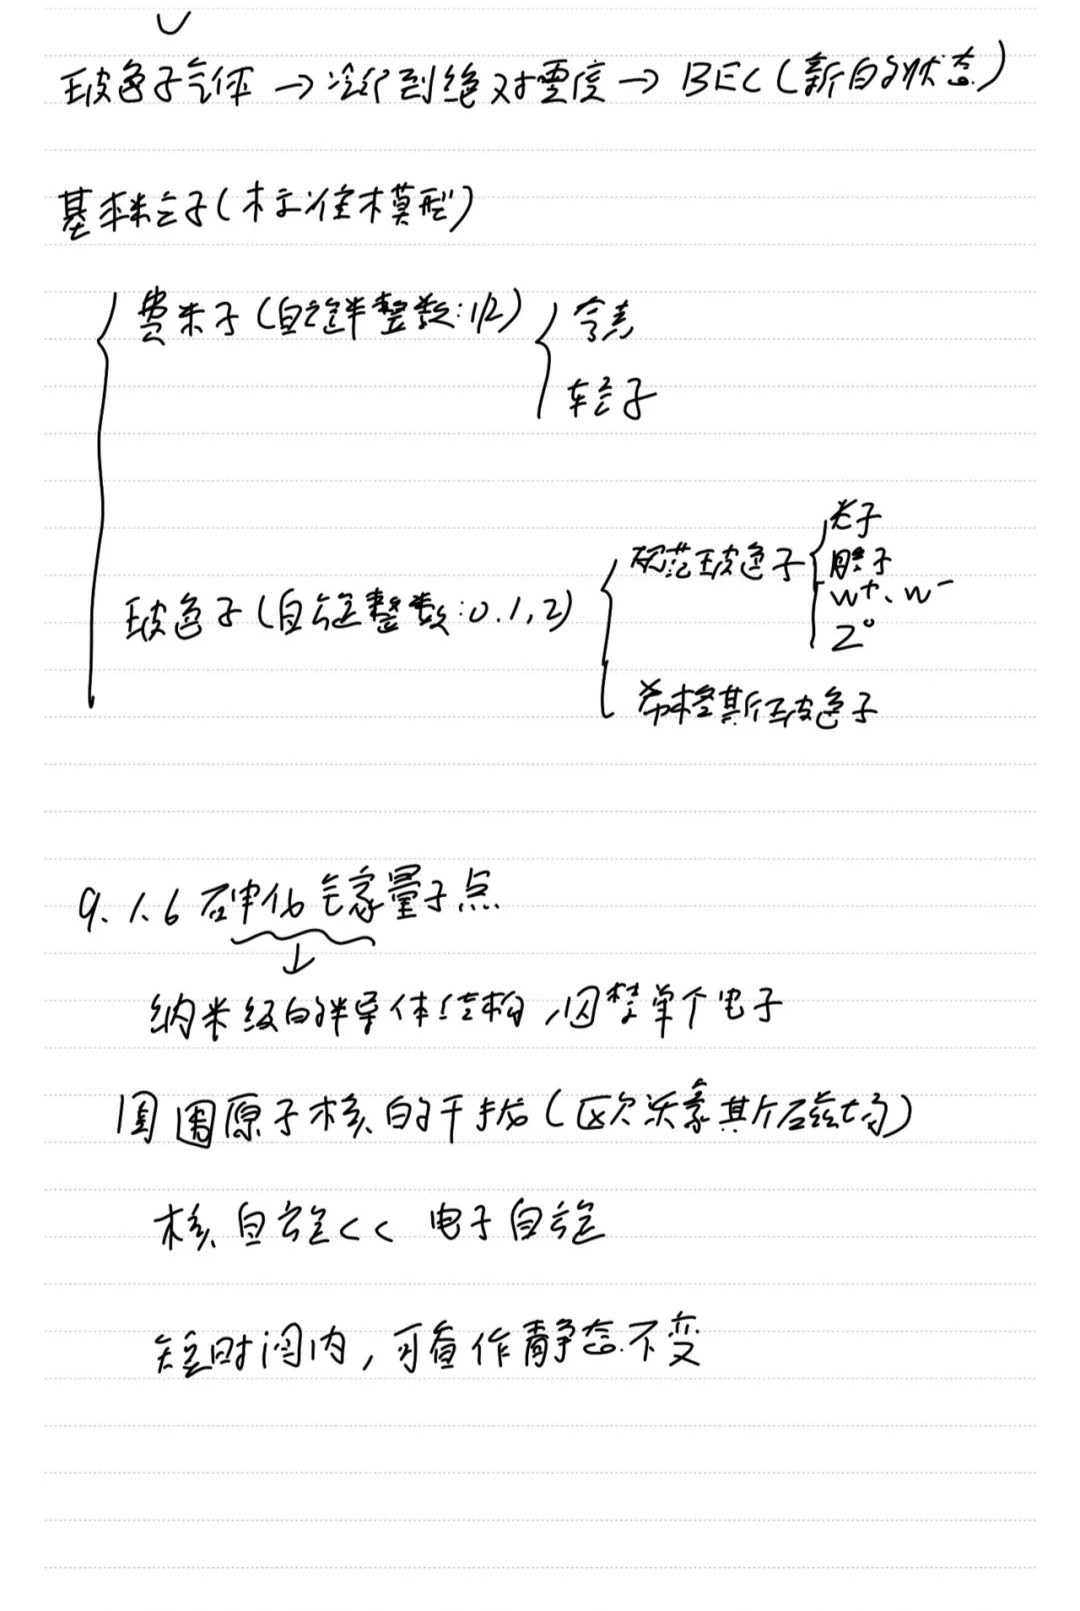 玻色子气体 → 冷却到绝对零度 → BEC (新的状态)
基本粒子(标准模型)
费米子(自旋半整数:1/2)
夸克
轻子
玻色子(自旋整数:0.1,2)
规范玻色子
光子
胶子
W⁺、W⁻
Z⁰
希格斯玻色子
9.1.6 砷化镓量子点
↓
纳米级的半导体结构,囚禁单个电子
周围原子核的干扰(欧沃豪斯磁场)
核自旋<< 电子自旋
短时间内,可看作静态不变